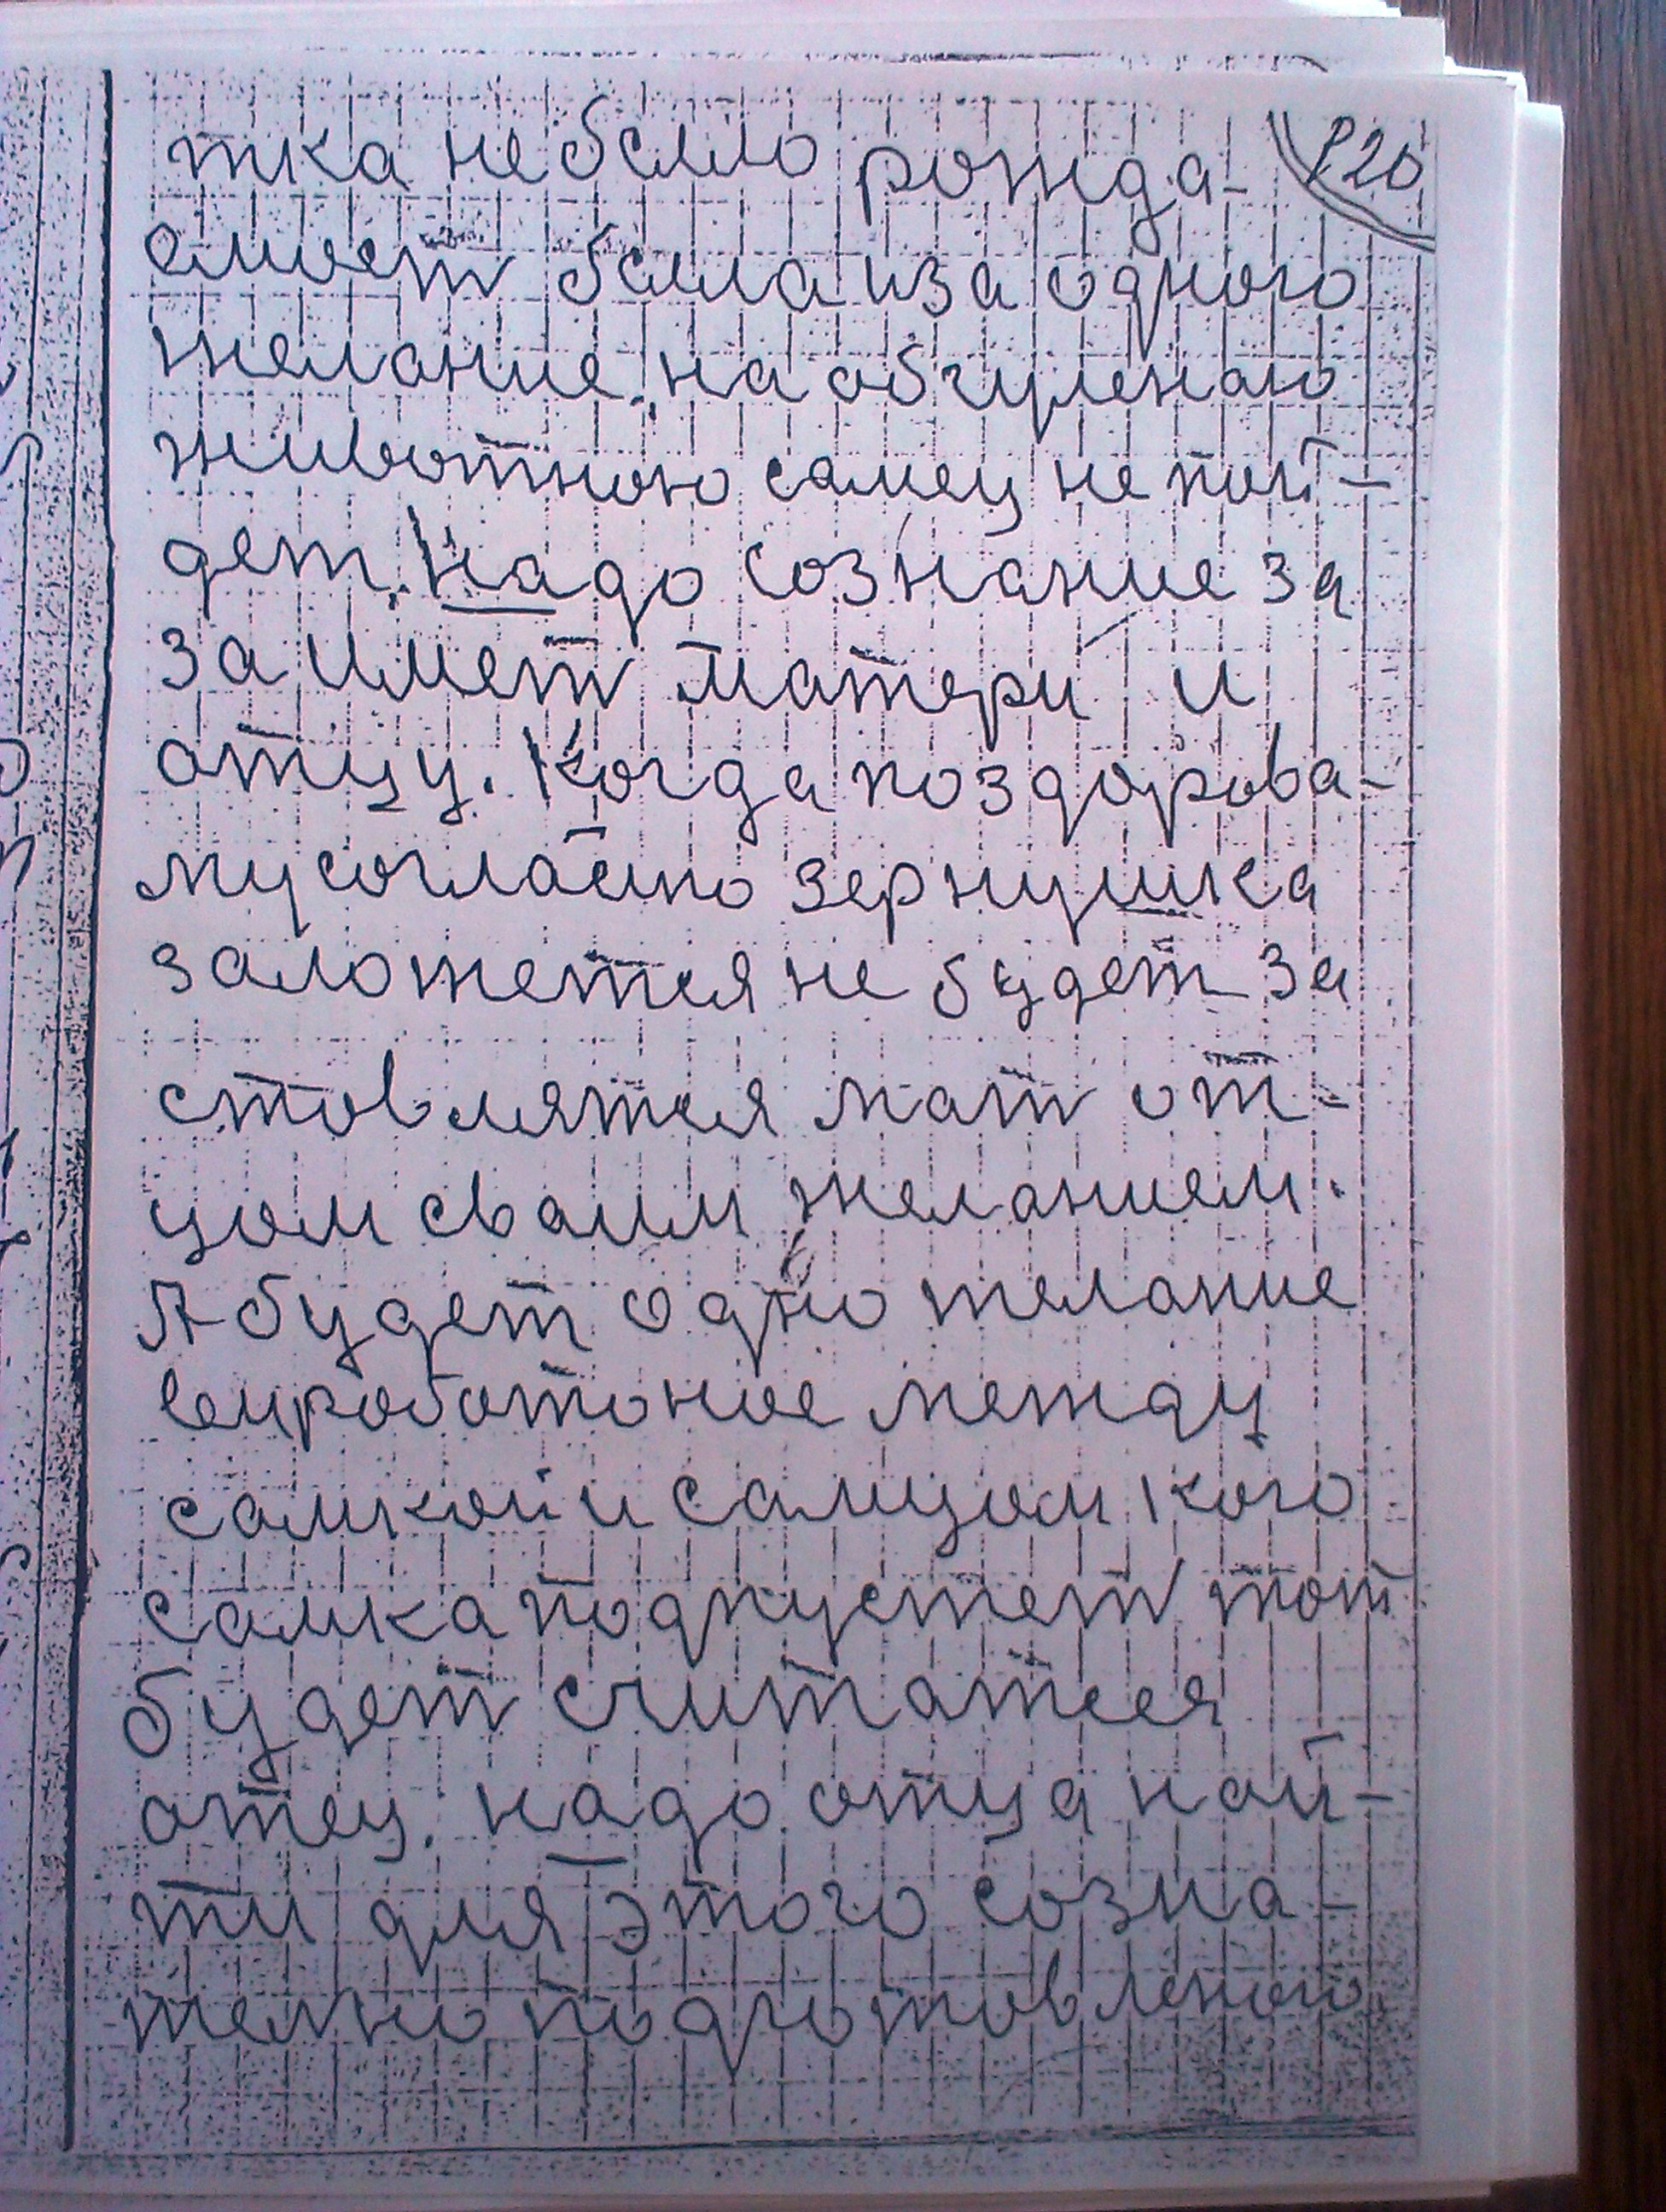 тка не было рожда- 120
емост была иза одного
желание, на обгуленаю
животною самец не пой-
дет. Надо сознание за
за имет матери и
отцу. Когда поздорова-
му согласно зернушка
заложется не будет за
ставлятся мат от-
цом сваим желанием.
А будет одно желание
выработоное между
самкой и самцом кого
самка подпустет тот
будет считатсея
отец. надо отца най-
ти для этого созна-
телно подготовленого